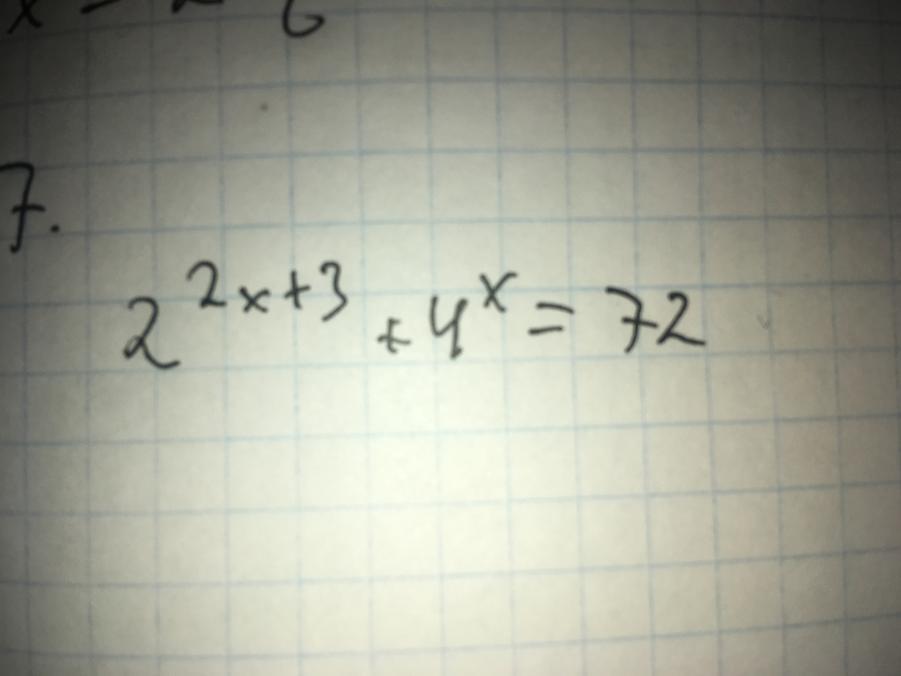 7.
2^{2x+3} + 4^x = 72